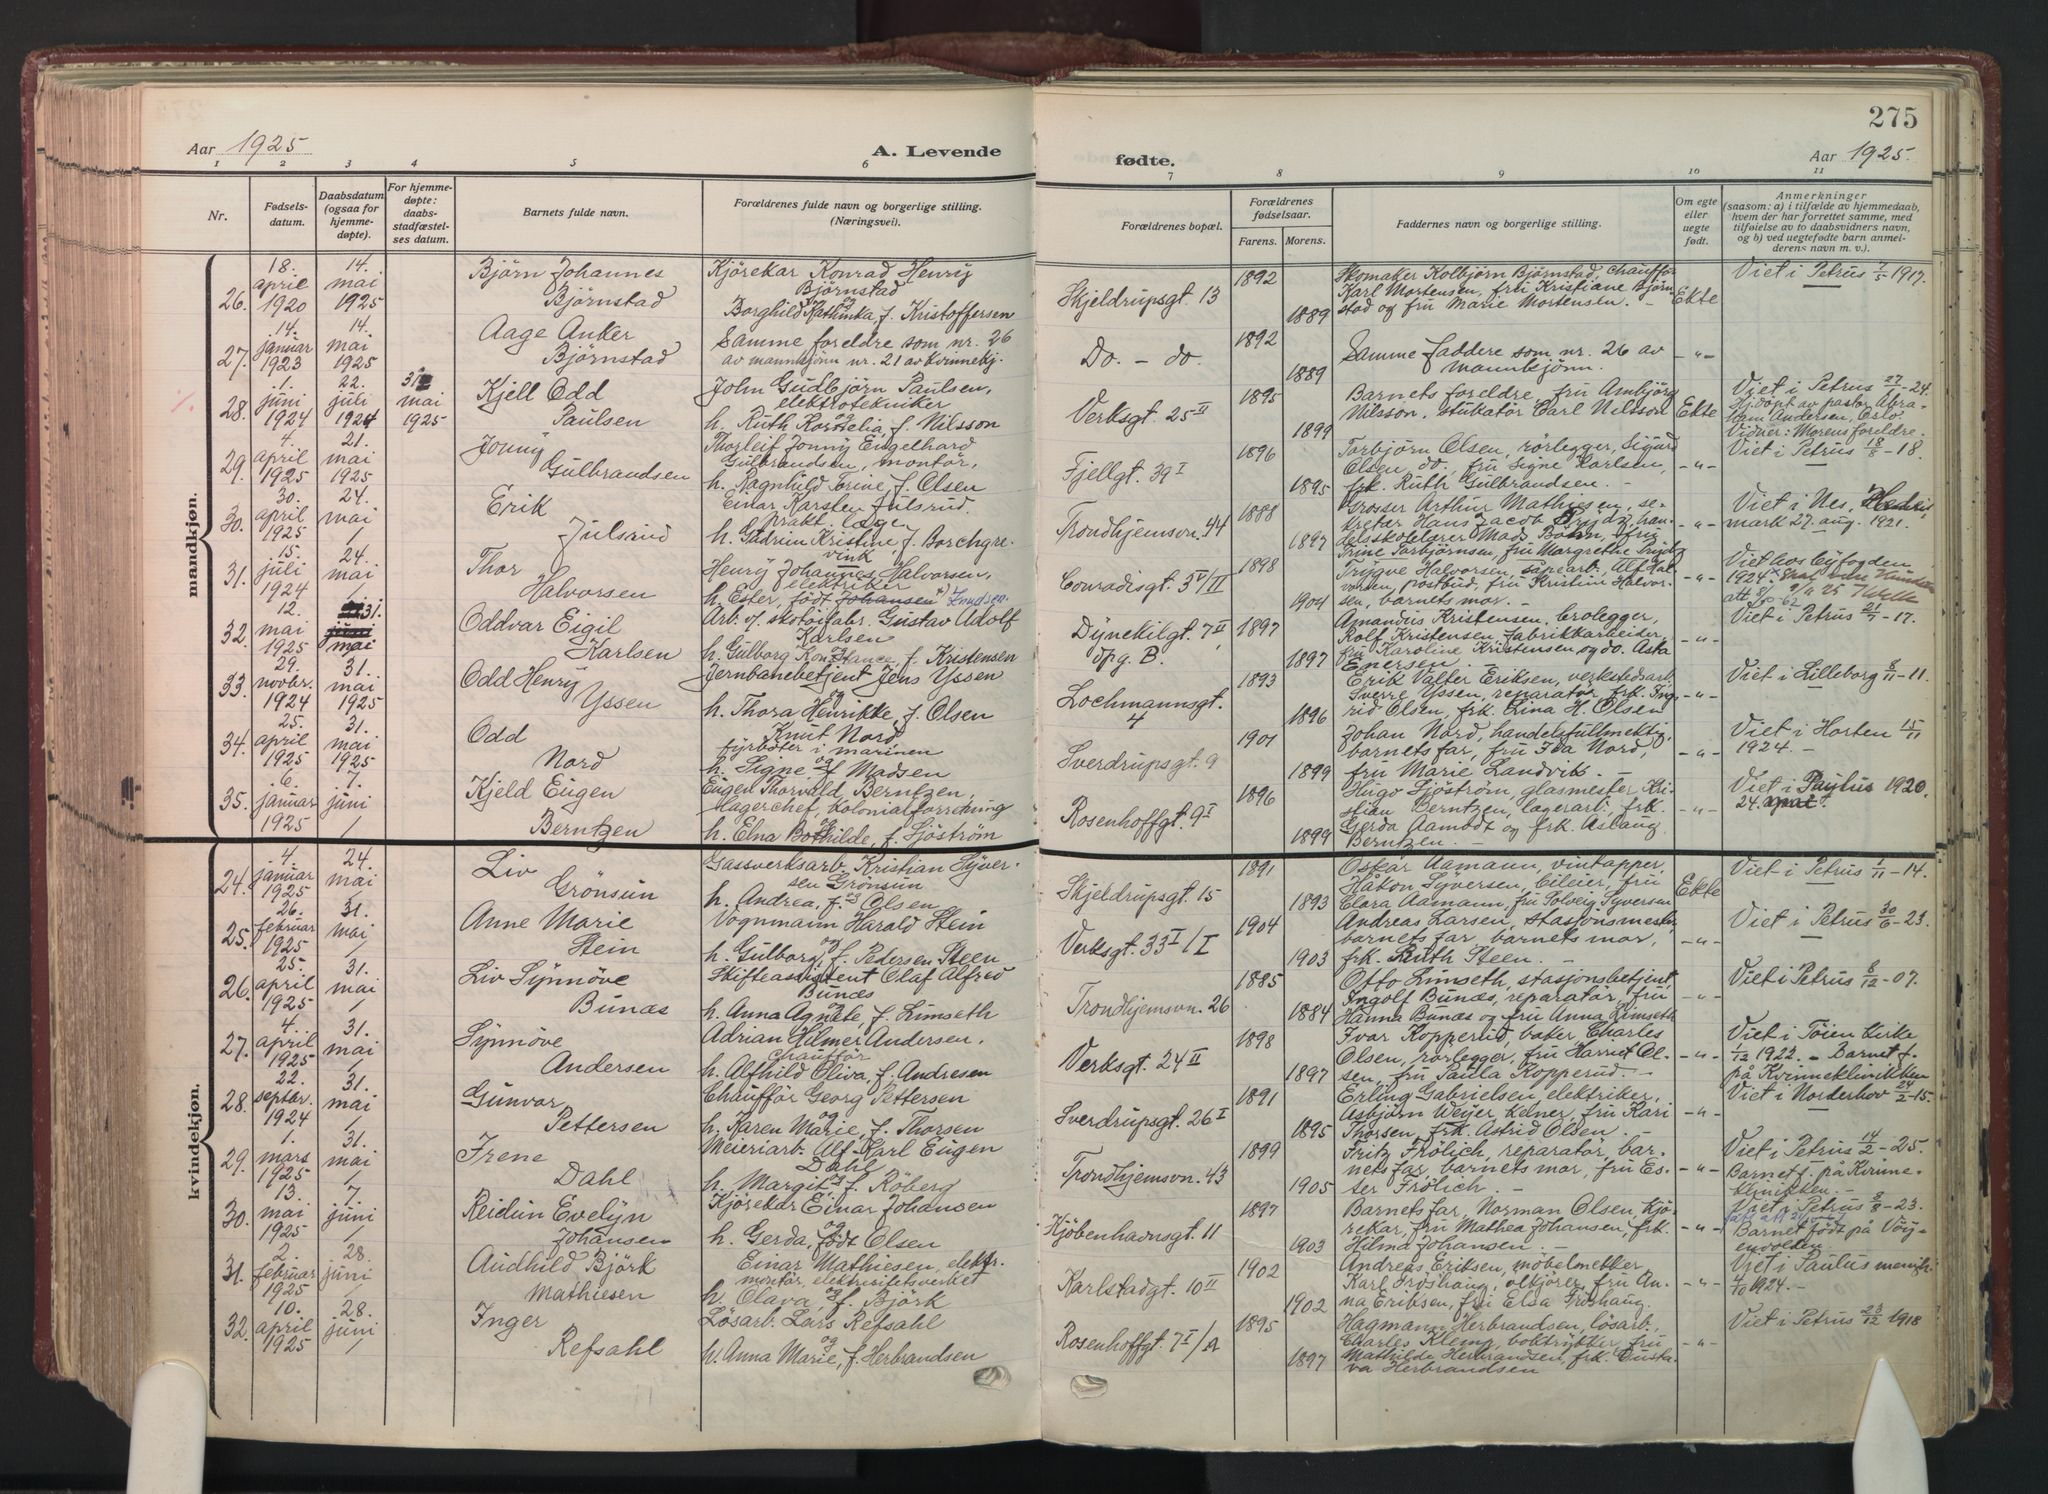 275
Aar 1925
A. Levende
fødte.
Aar 1925.
1 2 3 4 5 6 7 8 9 10 11
Nr.
Fødsels-
datum.
Daabsdatum
(ogsaa for
hjemme-
døpte).
For hjemme-
døpte:
daabs-
stadfæstel-
ses datum.
Barnets fulde navn.
Forældrenes fulde navn og borgerlige stilling.
(Næringsvei).
Forældrenes bopæl.
Forældrenes
fødselsaar.
Farens. Morens.
Faddernes navn og borgerlige stilling.
Om egte
eller
uegte
født.
Anmerkninger
(saasom: a) i tilfælde av hjemmedaab,
hvem der har forrettet samme, med
tilføielse av to daabsvidners navn,
og b) ved uegtefødte barn anmel-
derens navn m. v.).
mandkjøn.
26.
18.
april
1920
14.
mai
1925
Bjørn Johannes
Bjørnstad
Kjörekar Konrad Henry
Bjørnstad
og
Borghild Kathinka f. Kristoffersen
Skjeldrupsgt. 13
1892
1889
Skomaker Kolbjørn Bjørnstad, chauffør
Karl Mortensen, fru Kristiane Bjørn-
stad og fru Marie Mortensen. -
Ekte
Viet i Petrus 7/5 1917.
27.
14.
januar
1923
14.
mai
1925
Aage Anker
Bjørnstad
Samme foreldre som nr. 26
av mannkjønn nr. 21 av kvinnekj.
Do. - do.
1892
1889
Samme faddere som nr. 26 av
mannkjønn.
-"-
28.
1.
juni
1924
22.
juli
1924
31
mai
1925
Kjell Odd
Paulsen
John Gudbjørn Paulsen,
elektrotekniker
og
h. Ruth Kornelia f. Nilsson
Verksgt. 25 II
1895
1899
Barnets foreldre, fru Ambjörg
Nilsson, stukatør Carl Nilsson
Ekte
Viet i Petrus 27/1-24.
Hj. döpt av pastor Abra-
ham Andersen Oslo.
Vidner: Morens foreldre.
29.
4.
april
1925
21.
mai
1925
Jonny
Gulbrandsen
Thorleif Jonny Engelhard
Gulbrandsen, montör,
h. Ragnhild Torine, f. Olsen
Fjellgt. 39 I
1896
1895
Torbjörn Olsen, rörlegger, Sigurd
Olsen, do., fru Signe Karlsen,
frk. Ruth Gulbrandsen. -
-"-
Viet i Petrus 18/8-18.
30.
30.
april
1925
24.
mai
/
Erik
Julsrud
Einar Karsten Julsrud.
prakt. læge
h. Gudrun Kristine, f. Borchgre-
vink
Trondhjemsvn. 44
1888
1897
Grosser Arthur Mathiesen, se-
kretær Hans Jacob Prydz, han-
delsskolelærer Mads Bøhn, fru
Trine Torbjörnsen, fru Margrethe Prydz
-"-
Viet i Nes, Hedemarken
mark 27. aug. 1921.
31.
15.
juli
1924
24.
mai
/
Thor
Halvorsen
Henry Johannes Halvorsen,
elektriker
h. Ester, født Johansen Knudsen
Conradisgt. 3 V/II
1898
1904
Trygve Halvorsen, sapearb. Alf Hal-
vorsen, postbud, fru Kristine Halvor-
sen, barnets mor. -
Viet hos Byfogden
1924.
32.
12.
mai
1925
31.
mai
Oddvar Eigil
Karlsen
Arb. v. skotöifabr. Gustav Adolf
Karlsen
og
h. Gulborg Konstance, f. Kristensen
Dynekilgt. 7 II
opg. B.
1897
1897
Amandus Kristensen, brolegger,
Rolf Kristensen, fabrikkarbeider,
fru Karoline Kristensen og do. Asta
Enersen. -
-"-
Viet i Petrus 21/7-17.
33.
29.
novbr.
1924
31.
mai
1925
Odd Henry
Yssen
Jernbanebetjent Jens Yssen
og
h. Thora Henrikke, f. Olsen
Lochmannsgt.
4
1893
1896
Erik Valter Eriksen, verkstedsarb.
Sverre Yssen, reparatör, frk. Ing-
rid Olsen, frk. Lina H. Olsen
-"-
Viet i Lilleborg 8/11-11.
34.
25.
april
1925
31.
mai
1925
Odd
Nord
Knut Nord
fyrböter i marinen
og
h. Signe, f. Madsen
Sverdrupsgt. 9
1901
1899
Johan Nord, handelsfullmektig,
barnets far, fru Iva Nord,
fru Marie Landvik. -
-"-
Viet i Horten 15/11
1924. -
35.
6.
januar
1925
7.
juni
/
Kjeld Eugen
Berntzen
Eugen Thorvald Berntzen,
lagerchef, kolonialforretning
og
h. Elna Bothilde, f. Sjöström
Rosenhoffgt. 9 I
1896
1899
Hugo Sjöström, glasmester Kri-
stian Berntzen, lagerarb. frk.
Gerda Aamodt og frk. Aslaug
Berntzen. -
-"-
Viet i Paulus 1920.
24.
kvindekjøn.
24.
4.
januar
1925
24.
mai
/
Liv
Grönsun
Gassverksarb. Kristian Syver-
sen Grönsun
og
h. Andrea, f. Olsen
Skjeldrupsgt. 15
1891
1893
Oskar Aamann, vintapper,
Håkon Syversen, bileier, fru
Clara Aamann, fru Solveig Syversen
Ekte
Viet i Petrus 1/11-14.
25.
26.
februar
1925
31.
mai
/
Anne Marie
Stein
Vognmann Harald Stein
og
h. Gulborg, f. Pedersen Steen
Verksgt. 33 I/I
1904
1903
Andreas Larsen, stasjonsmester,
barnets far, barnets mor,
frk. Ruth Steen. -
-"-
Viet i Petrus 30/6-23.
26.
25.
april
1925
31.
mai
/
Liv Synnöve
Bunæs
Skifteassistent Olaf Alfred
Bunæs
og
h. Anna Agnete, f. Limseth
Trondhjemsvn. 26
1885
1884
Otto Limseth, stasjonsbetjent,
Ingolf Bunæs, reparatör, fru
Hanna Bunæs og fru Anna Limseth
-"-
Viet i Petrus 8/12-07.
27.
4.
april
1925
31.
mai
/
Synnöve
Andersen
Adrian Hilmer Andersen,
chauffør
h. Alfhild Oliva, f. Andresen
Verksgt. 24 II
1898
1897
Ivar Kopperud, baker, Charles
Olsen, rörlegger, fru Harriet Ol-
sen, fru Paula Kopperud. -
-"-
Viet i Töien kirke
1/12 1922. - Barnet f.
på Kvinneklinikken
28.
22.
septbr.
1924
31.
mai
/
Gunvor
Pettersen
Chauffør Georg Pettersen
og
h. Karen Marie, f. Thorsen
Sverdrupsgt. 26 I
1891
1895
Erling Gabrielsen, elektriker,
Asbjörn Weijer, kelner, fru Kari
Thorsen, frk. Astrid Olsen. -
-"-
Viet i Norderhov 24/2-15.
29.
1.
mars
1925
31.
mai
/
Irene
Dahl
Meieriarb. Alf Karl Eugen
Dahl
og
h. Margit, f. Röberg
Trondhjemsvn. 43
1899
1905
Fritz Frölich, reparatör, bar-
nets far, barnets mor, fru Es-
ter Frölich. -
-"-
Viet i Petrus 14/2-25.
Barnet f. på Kvinne-
klinikken. -
30.
13.
mai
1925
7.
juni
/
Reidun Evelyn
Johansen
Kjörekar Einar Johansen
og
h. Gerda, född Olsen
Kjöbenhavnsgt. 11
1897
1903
Barnets far, Norman Olsen, kjö-
rekar, fru Mathea Johansen, frk.
Hilma Johansen. -
-"-
Viet i Petrus 8/8-23.
Barnet født på Vöy-
envolden.
31.
2.
februar
1925
28.
juni
/
Audhild Björk
Mathiesen
Einar Mathiesen, elektr.
montör, elektrisitetsverket
og
h. Olava, f. Björk
Karlstadgt. 10 II
1902
1902
Andreas Eriksen, möbelmekler,
Karl Froshaug, olkjörer, fru An-
na Eriksen, fru Elsa Froshaug.
-"-
Viet i Paulus menigh.
1924. -
32.
10.
april
1925
28.
juni
/
Inger
Refsahl
Lösarb. Lars Refsahl
og
h. Anna Marie, f. Herbrandsen
Rosenhoffgt. 7 I/A
1895
1897
Hagmann Herbrandsen, lösarb.,
Charles Kleinp, boktrykker, fru
Mathilde Herbrandsen, frk. Gusta-
va Herbrandsen
-"-
Viet i Petrus 23/12 1918